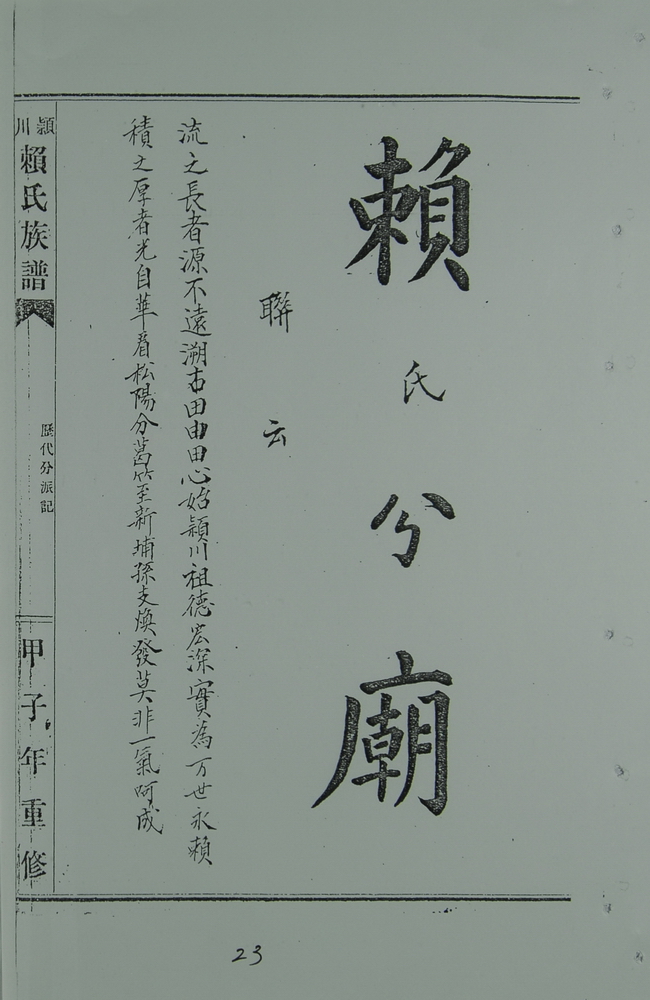 賴氏分廟
聯云
流之長者源不遠溯古田由田心始潁川祖德宏深實為万世永賴
積之厚者光自華看松陽分葛竹至新埔孫支煥發莫非一氣呵成
潁川
賴氏族譜
歷代分派記
甲子年重修
23